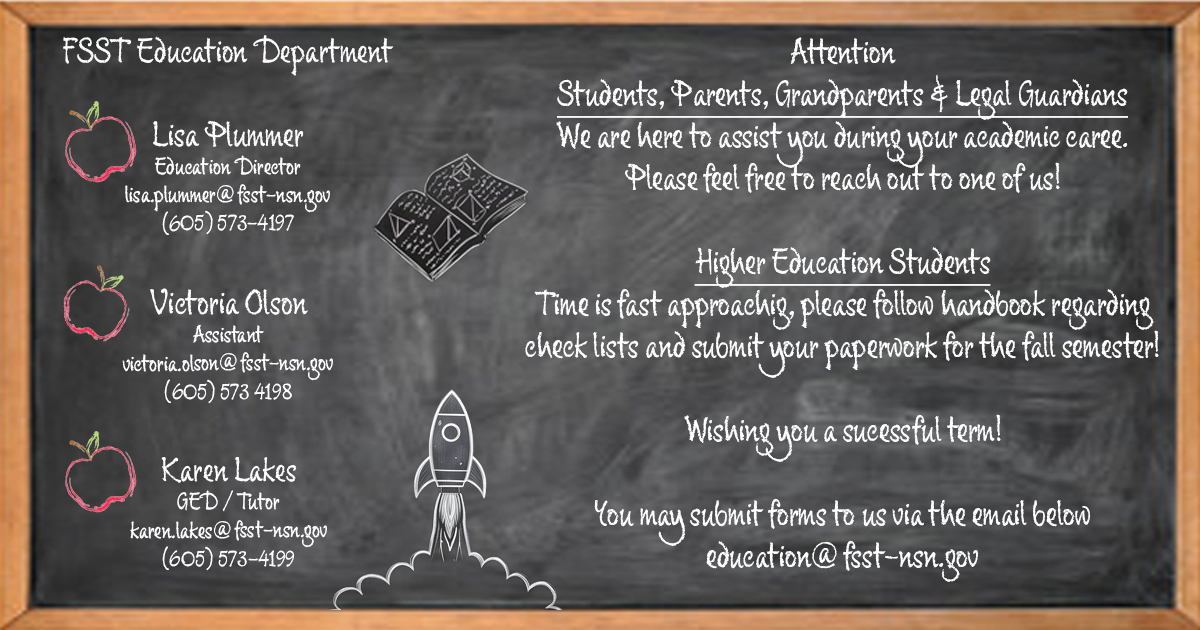 FSST Education Department
Lisa Plummer
Education Director
lisa.plummer@fsst-nsn.gov
(605) 573-4197
Victoria Olson
Assistant
victoria.olson@fsst-nsn.gov
(605) 573 4198
Karen Lakes
GED / Tutor
karen.lakes@fsst-nsn.gov
(605) 573-4199
Attention
Students, Parents, Grandparents & Legal Guardians
We are here to assist you during your academic caree.
Please feel free to reach out to one of us!
Higher Education Students
Time is fast approachig, please follow handbook regarding
check lists and submit your paperwork for the fall semester!
Wishing you a sucessful term!
You may submit forms to us via the email below
education@fsst-nsn.gov